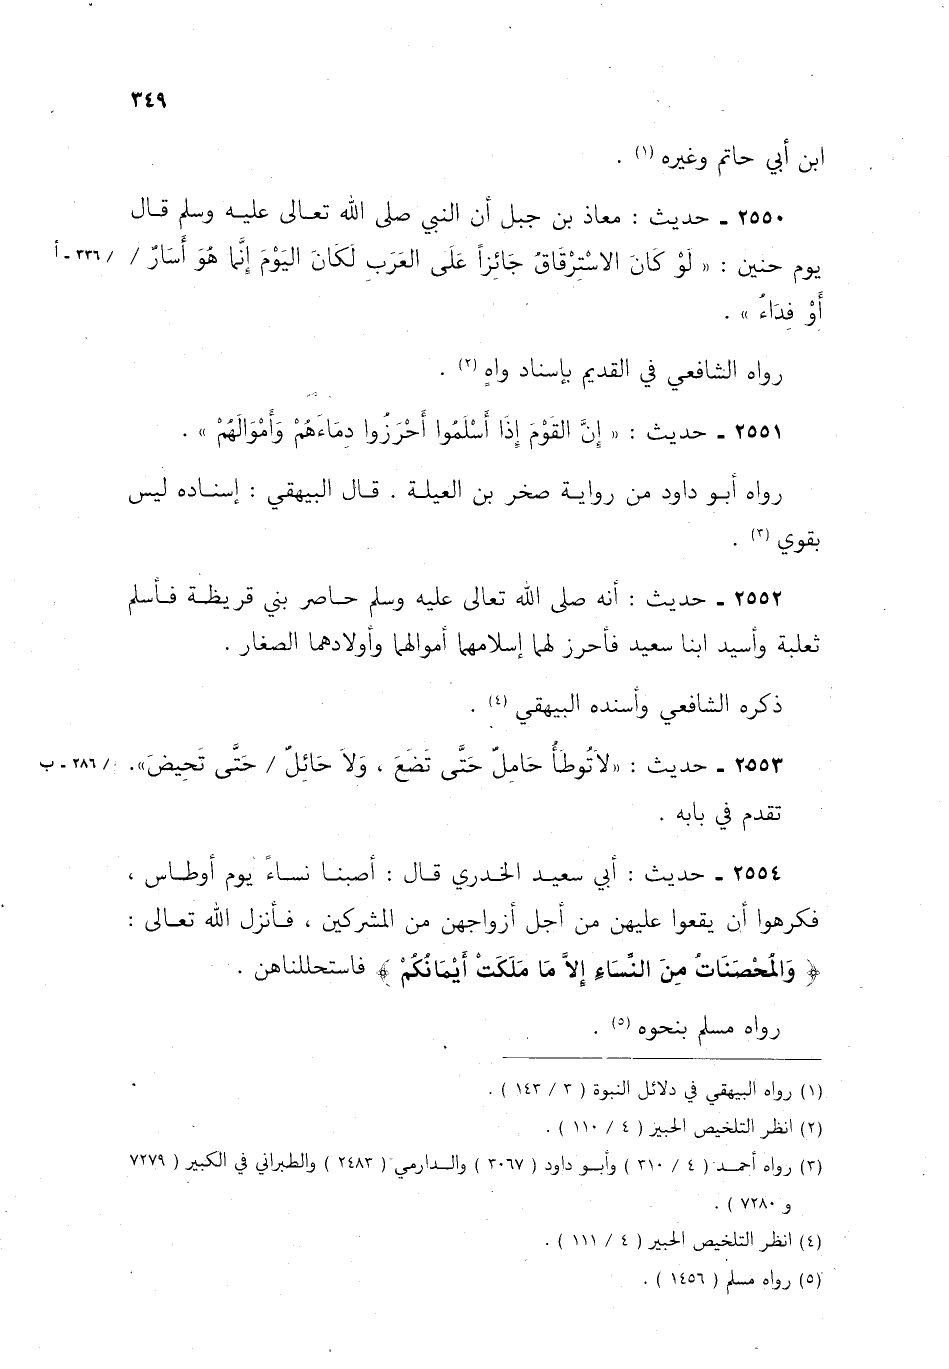 ٣٤٩
ابن أبي حاتم وغيره (١) .
٢٥٥٠ ـ حديث : معاذ بن جبل أن النبي صلى الله تعالى عليه وسلم قال
يوم حنين : « لَوْ كَانَ الاسْتِرْقَاقُ جَائِزاً عَلَى العَرَبِ لَكَانَ اليَوْمَ إِنَّما هُوَ أَسَارٌ / / ٣٣٦ ـ أ
أَوْ فِدَاءٌ » .
رواه الشافعي في القديم بإسناد واهٍ (٢) .
٢٥٥١ ـ حديث : « إِنَّ القَوْمَ إِذَا أَسْلَمُوا أَحْرَزُوا دِمَاءَهُمْ وَأَمْوَالَهُمْ » .
رواه أبو داود من رواية صخر بن العيلة . قال البيهقي : إسناده ليس
بقوي (٣) .
٢٥٥٢ ـ حديث : أنه صلى الله تعالى عليه وسلم حاصر بني قريظة فأسلم
ثعلبة وأسيد ابنا سعيد فأحرز لهما إسلامهما أموالهما وأولادهما الصغار .
ذكره الشافعي وأسنده البيهقي (٤) .
٢٥٥٣ ـ حديث : «لاَتُوطَأُ حَامِلٌ حَتَّى تَضَعَ ، وَلاَ حَائِلٌ / حَتَّى تَحِيضَ». / ٢٨٦ ـ ب
تقدم في بابه .
٢٥٥٤ ـ حديث : أبي سعيد الخدري قال : أصبنا نساءً يوم أوطاس ،
فكرهوا أن يقعوا عليهن من أجل أزواجهن من المشركين ، فأنزل الله تعالى :
﴿ وَالمُحْصَنَاتُ مِنَ النِّسَاءِ إِلاَّ مَا مَلَكَتْ أَيْمَانُكُمْ ﴾ فاستحللناهن .
رواه مسلم بنحوه (٥) .
(١) رواه البيهقي في دلائل النبوة ( ٣ / ١٤٣ ) .
(٢) انظر التلخيص الحبير ( ٤ / ١١٠ ) .
(٣) رواه أحمد ( ٤ / ٣١٠ ) وأبو داود ( ٣٠٦٧ ) والدارمي ( ٢٤٨٣ ) والطبراني في الكبير ( ٧٢٧٩
و ٧٢٨٠ ) .
(٤) انظر التلخيص الحبير ( ٤ / ١١١ ) .
(٥) رواه مسلم ( ١٤٥٦ ) .